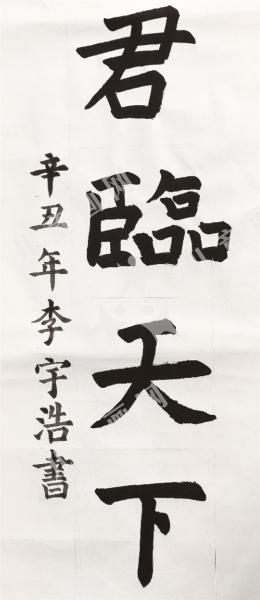 君臨天下
辛丑年李宇浩書